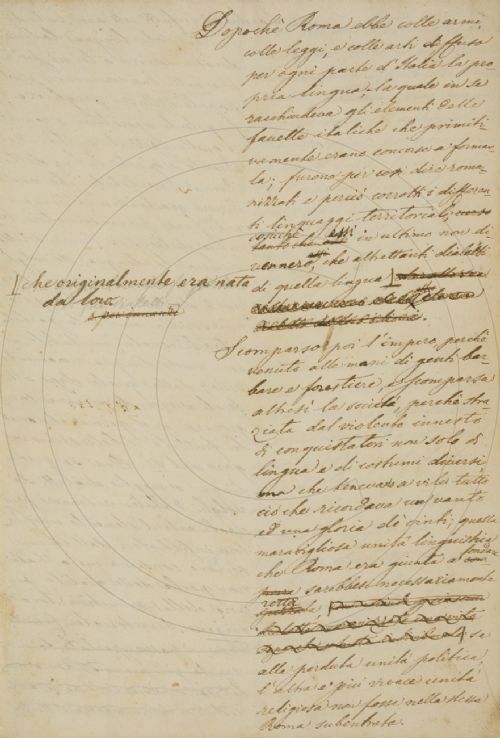 Dopoché Roma ebbe colle armi,
colle leggi, e colle arti diffusa
per ogni parte d'Italia la pro-
pria lingua, la quale in se
racchiudeva gli elementi delle
favelle italiche che primiti-
vamente erano concorse a formar-
la; furono per così dire roma-
nizzati e perciò corrotti i differen-
ti linguaggi territoriali;
cosicché essi in ultimo non di-
vennero, che altrettanti dialetti
di quella lingua
che originalmente era nata
da loro
Scomparso poi l'impero, perché
venuto alle mani di genti bar-
bare e forestiere, e scomparsa
altresì la società, perché stra-
ziata dal violento innesto
di conquistatori non solo di
lingua e di costumi diversi,
ma che tenevano a vile tutto
ciò che ricordava un vanto
ed una gloria de' vinti; quella
maravigliosa unità linguistica
che Roma era giunta a fondare
sarebbesi necessariamente
rotta se
alla perduta unità politica,
l'altra e più vivace unità
religiosa non fosse nella stessa
Roma subentrata.